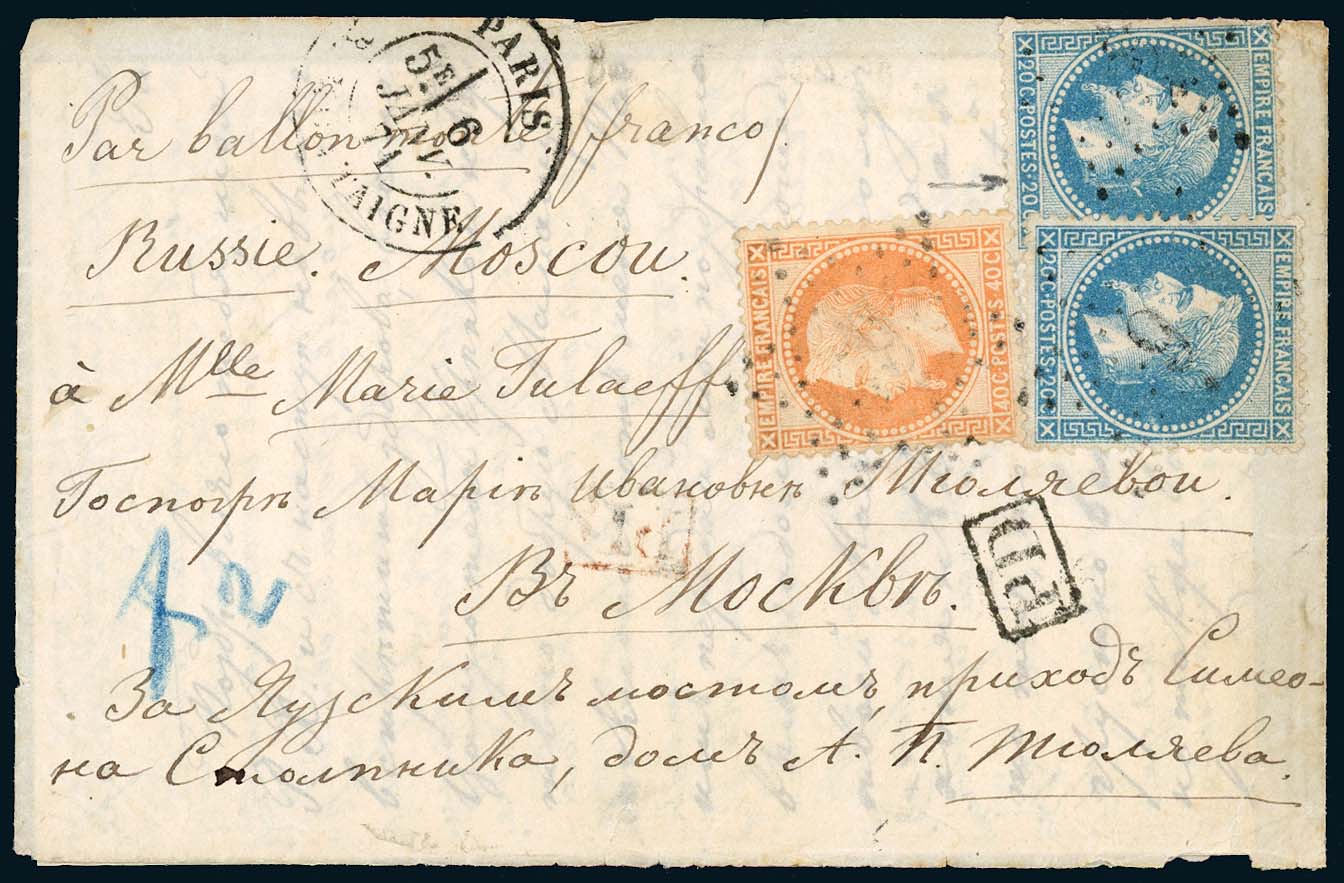 PARIS
5E 6
JANV.
71
TAIGNE
Par ballon monté (franco)
Russie. Moscou.
à Mlle Marie Tulaeff
Госпожѣ Маріѣ Ивановнѣ Тюляевои.
Въ Москвѣ.
За Яузскимъ мостомъ, приходъ Симео-
на Столпника, домъ А. П. Тюляева.
20 C·POSTES·20 C
EMPIRE FRANCAIS
EMPIRE FRANCAIS
40C·POSTES 40C
20 C·POSTES·20 C
EMPIRE FRANCAIS
PD
2